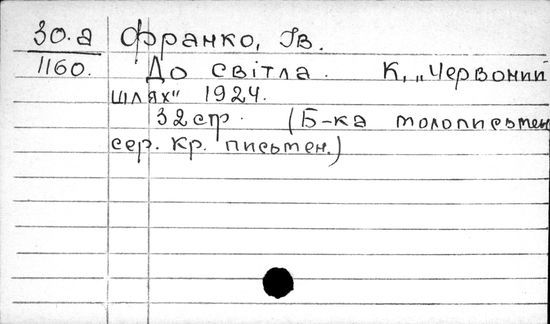 30.а Франко, Ів.
1160. До світла. К, „Червоний
шлях" 1924.
32стр. (Б-ка молописьмен
сер. кр. письмен.)